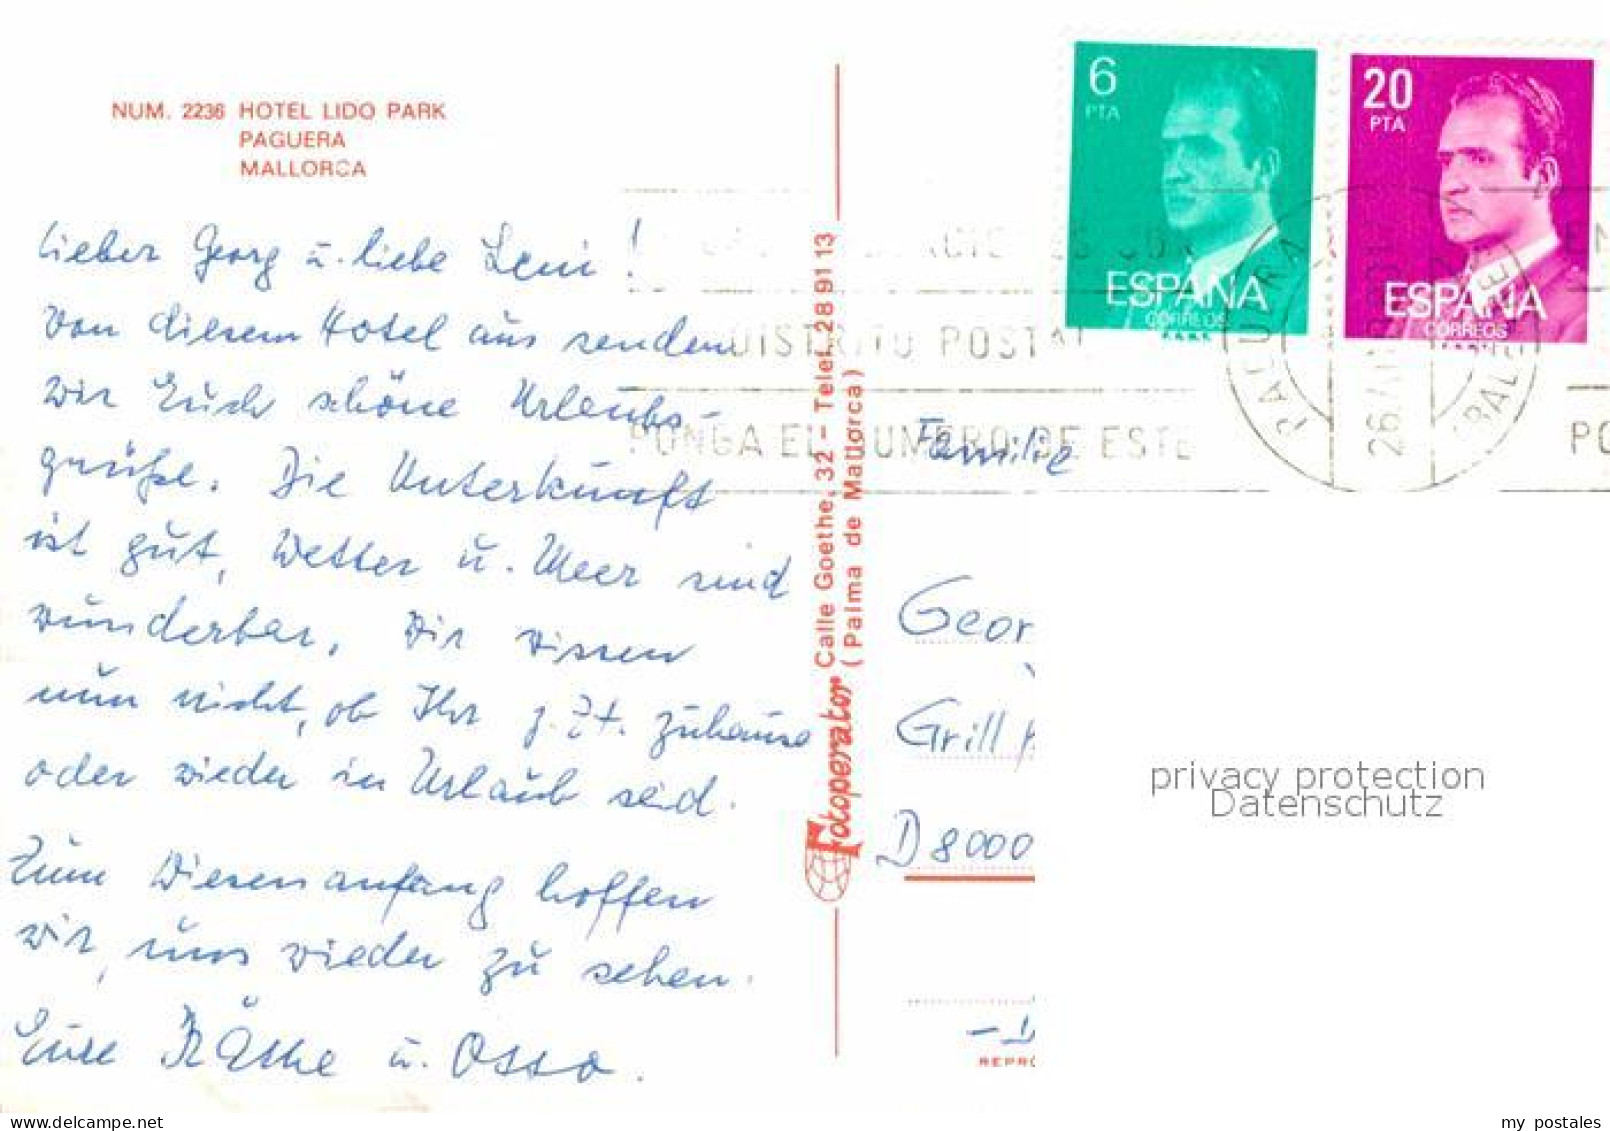 NUM. 2236 HOTEL LIDO PARK
PAGUERA
MALLORCA
Lieber Georg u. liebe Leni!
Von diesem Hotel aus senden
wir Euch schöne Urlaubs-
grüße. Die Unterkunft
ist gut, Wetter u. Meer sind
wunderbar. Wir wissen
nun nicht, ob Ihr z. Zt. zuhause
oder wieder in Urlaub seid.
Zum Wiesenanfang hoffen
wir, uns wieder zu sehen.
Eure Käthe u. Otto.
Fotoperator Calle Goethe, 32 - Telef. 28 91 13
(Palma de Mallorca)
6
PTA
ESPAÑA
CORREOS
20
PTA
ESPAÑA
CORREOS
DISTRITO POSTAL
PONGA EL NUMERO DE ESTE
PAGUERA
BALEARES
26
EN
PO
Familie
Geor
Grill
D 8000
REPRO
privacy protection
Datenschutz
delcampe.net
my_postales